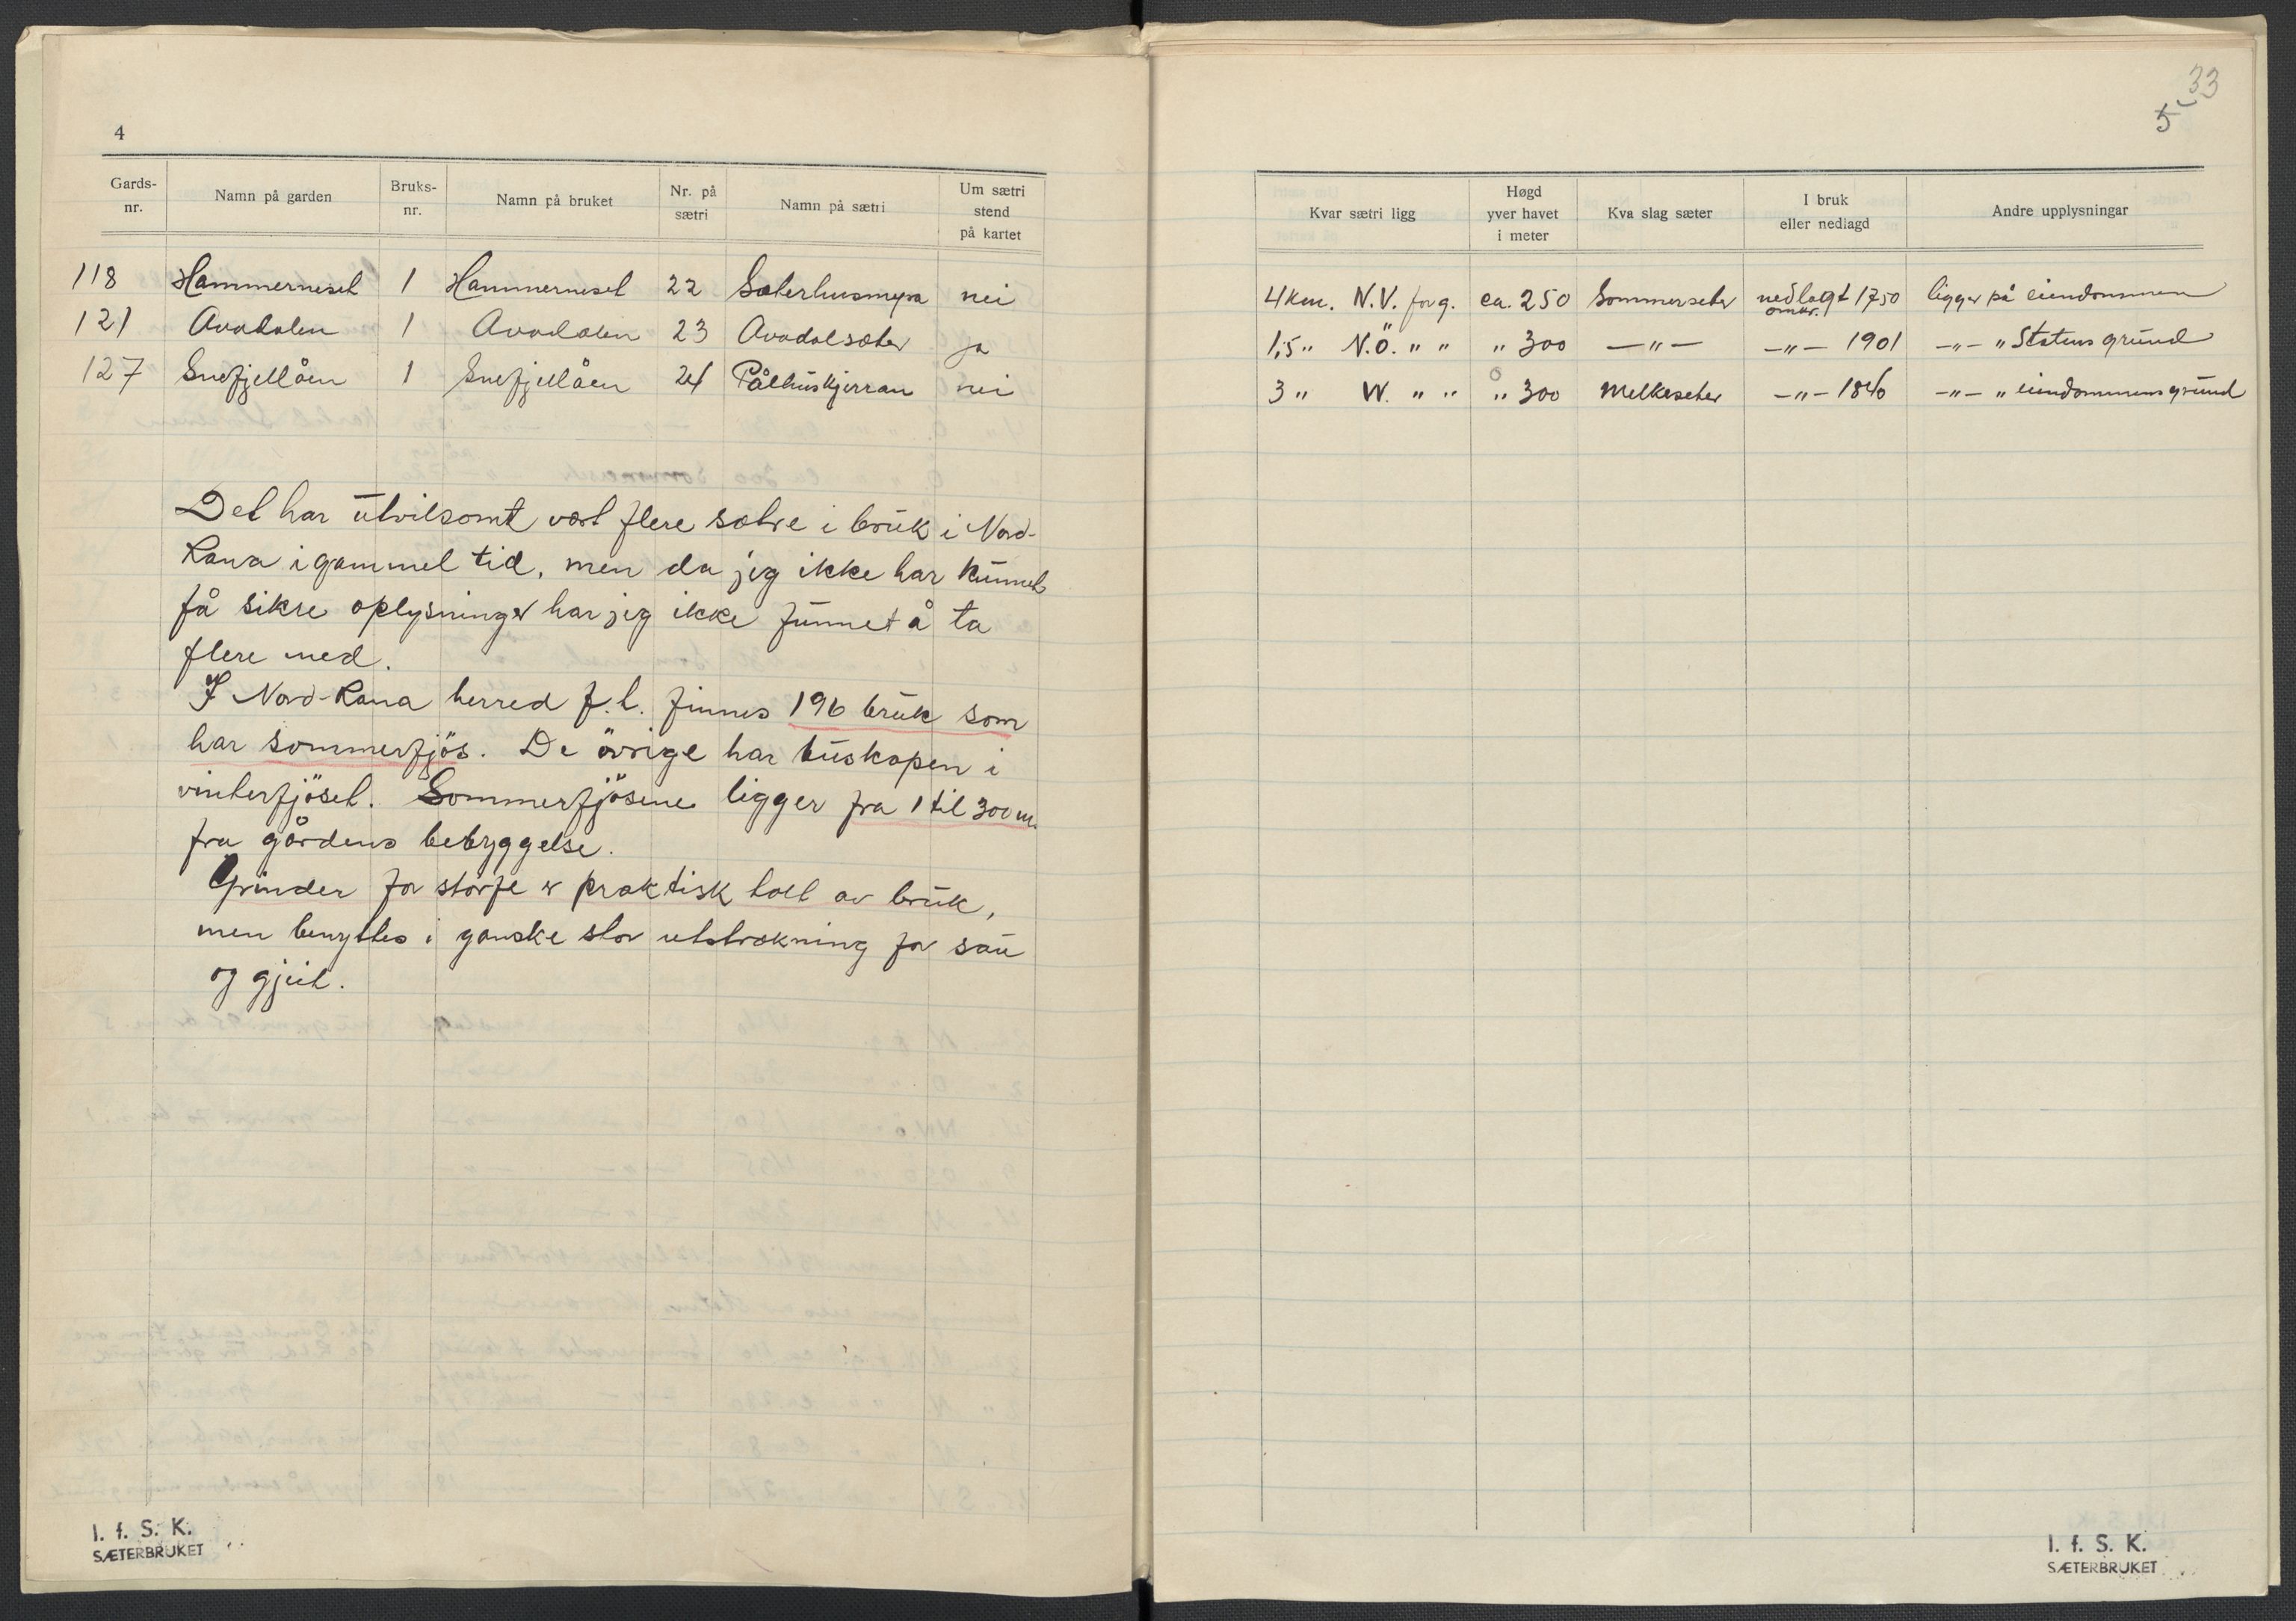 4
Gards-nr. Namn på garden Bruks-nr. Namn på bruket Nr. på sætri Namn på sætri Um sætri stend på kartet
118 Hammerneset 1 Hammerneset 22 Sæterhusmyra nei
121 Avadalen 1 Avadalen 23 Avadalsæter ja
127 Snefjellåen 1 Snefjellåen 24 Pålhuskjerran nei
Det har utvilsomt vært flere sætre i bruk i Nord-
Rana i gammel tid, men da jeg ikke har kunnet
få sikre oplysninger har jeg ikke funnet å ta
flere med.
I Nord-Rana herred f.t. finnes 196 bruk som
har sommerfjös. De övrige har buskapen i
vinterfjöset. Sommerfjösene ligger fra 1 til 300 m.
fra gårdens bebyggelse.
Grinder for storfe er praktisk talt av bruk,
men benyttes i ganske stor utstrekning for sau
og gjeit.
I. f. S. K.
SÆTERBRUKET
33
5
Kvar sætri ligg Høgd yver havet i meter Kva slag sæter I bruk eller nedlagd Andre upplysningar
4 km. N.V. for g. ca. 250 Sommerseter nedlagt omkr. 1750 ligger på eiendommen
1,5 " N.Ö. " " " 300 —"— —"— 1901 —"— " Statens grund
3 " W. " " " 300 Melkeseter —"— 1840 —"— " eiendommens grund
I. f. S. K.
SÆTERBRUKET